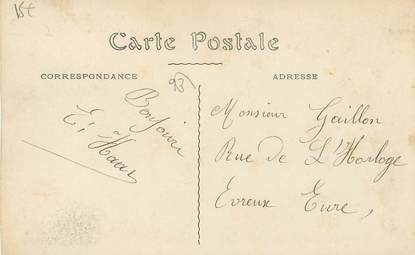 15t
Carte Postale
CORRESPONDANCE
93
ADRESSE
Bonjour
Monsieur Gaillon
Rue de L'Horloge
Evreux Eure,